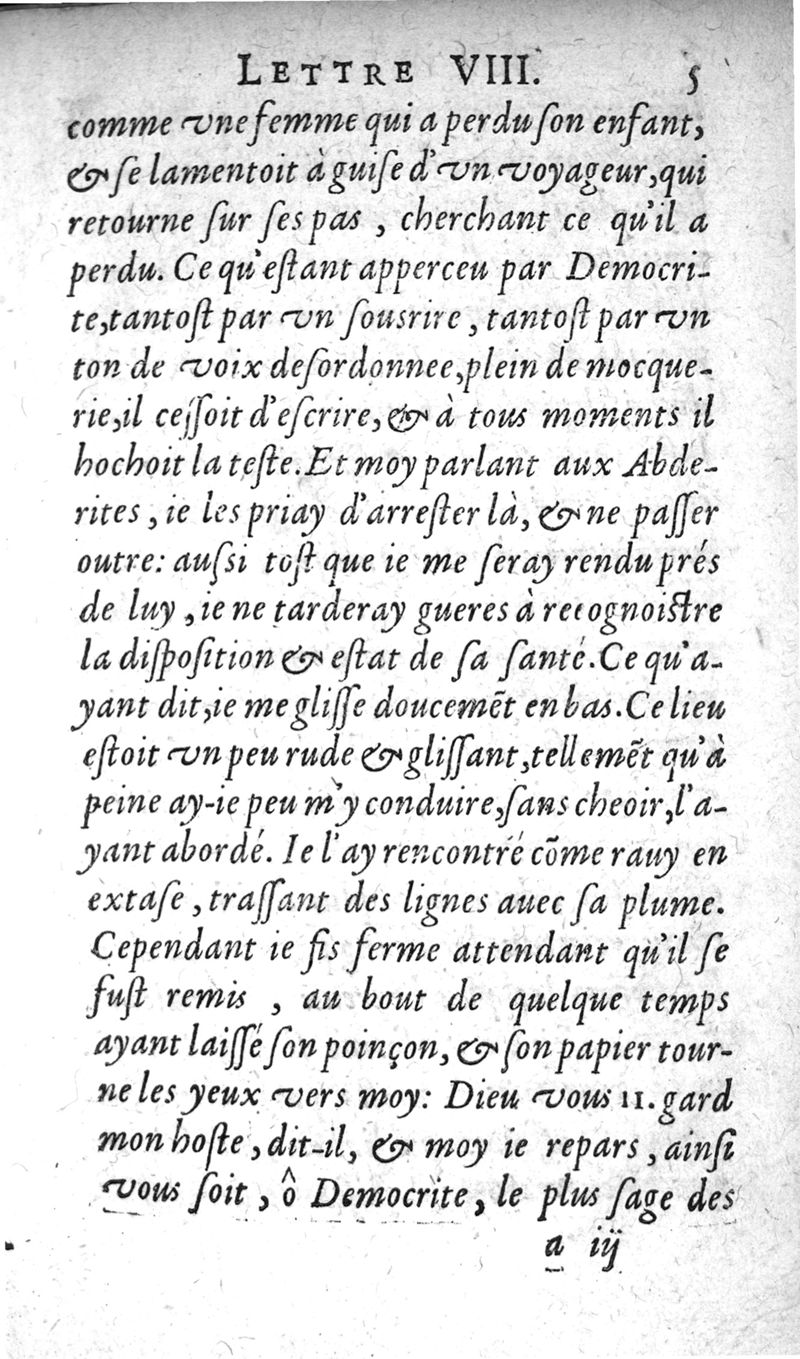 LETTRE VIII. 5
comme vne femme qui a perdu ſon enfant,
& ſe lamentoit à guiſe d'vn voyageur, qui
retourne ſur ſes pas , cherchant ce qu'il a
perdu. Ce qu'eſtant apperceu par Democri-
te,tantoſt par vn ſousrire , tantoſt par vn
ton de voix deſordonnee,plein de mocque-
rie,il ceſſoit d'eſcrire, & à tous moments il
hochoit la teſte. Et moy parlant aux Abde-
rites , ie les priay d'arreſter là, & ne paſſer
outre: auſsi toſt que ie me ſeray rendu prés
de luy , ie ne tarderay gueres à recognoiſtre
la diſpoſition & eſtat de ſa ſanté. Ce qu'a-
yant dit,ie me gliſſe doucemẽt en bas. Ce lieu
eſtoit vn peu rude & gliſſant,tellemẽt qu'à
peine ay-ie peu m'y conduire,ſans cheoir,l'a-
yant abordé. Ie l'ay rencontré cõme rauy en
extaſe , traſſant des lignes auec ſa plume.
Cependant ie fis ferme attendant qu'il ſe
fuſt remis , au bout de quelque temps
ayant laiſſé ſon poinçon, & ſon papier tour-
ne les yeux vers moy: Dieu vous 11. gard
mon hoſte , dit-il, & moy ie repars , ainſi
vous ſoit , ô Democrite, le plus ſage des
a iij